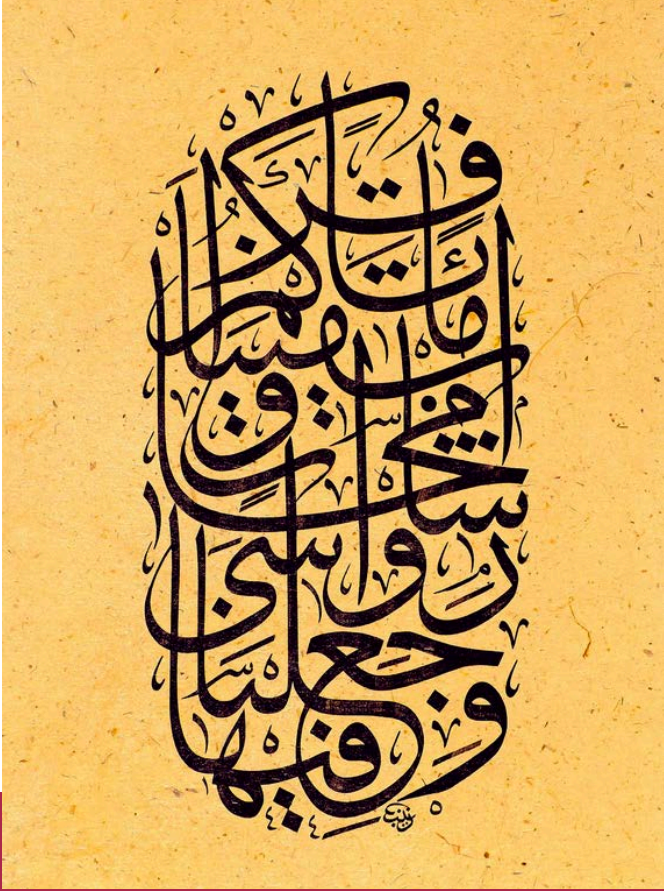 وَجَعَلْنَا فِيهَا رَوَاسِيَ شَامِخَاتٍ وَأَسْقَيْنَاكُم مَّاءً فُرَاتًا
زينب